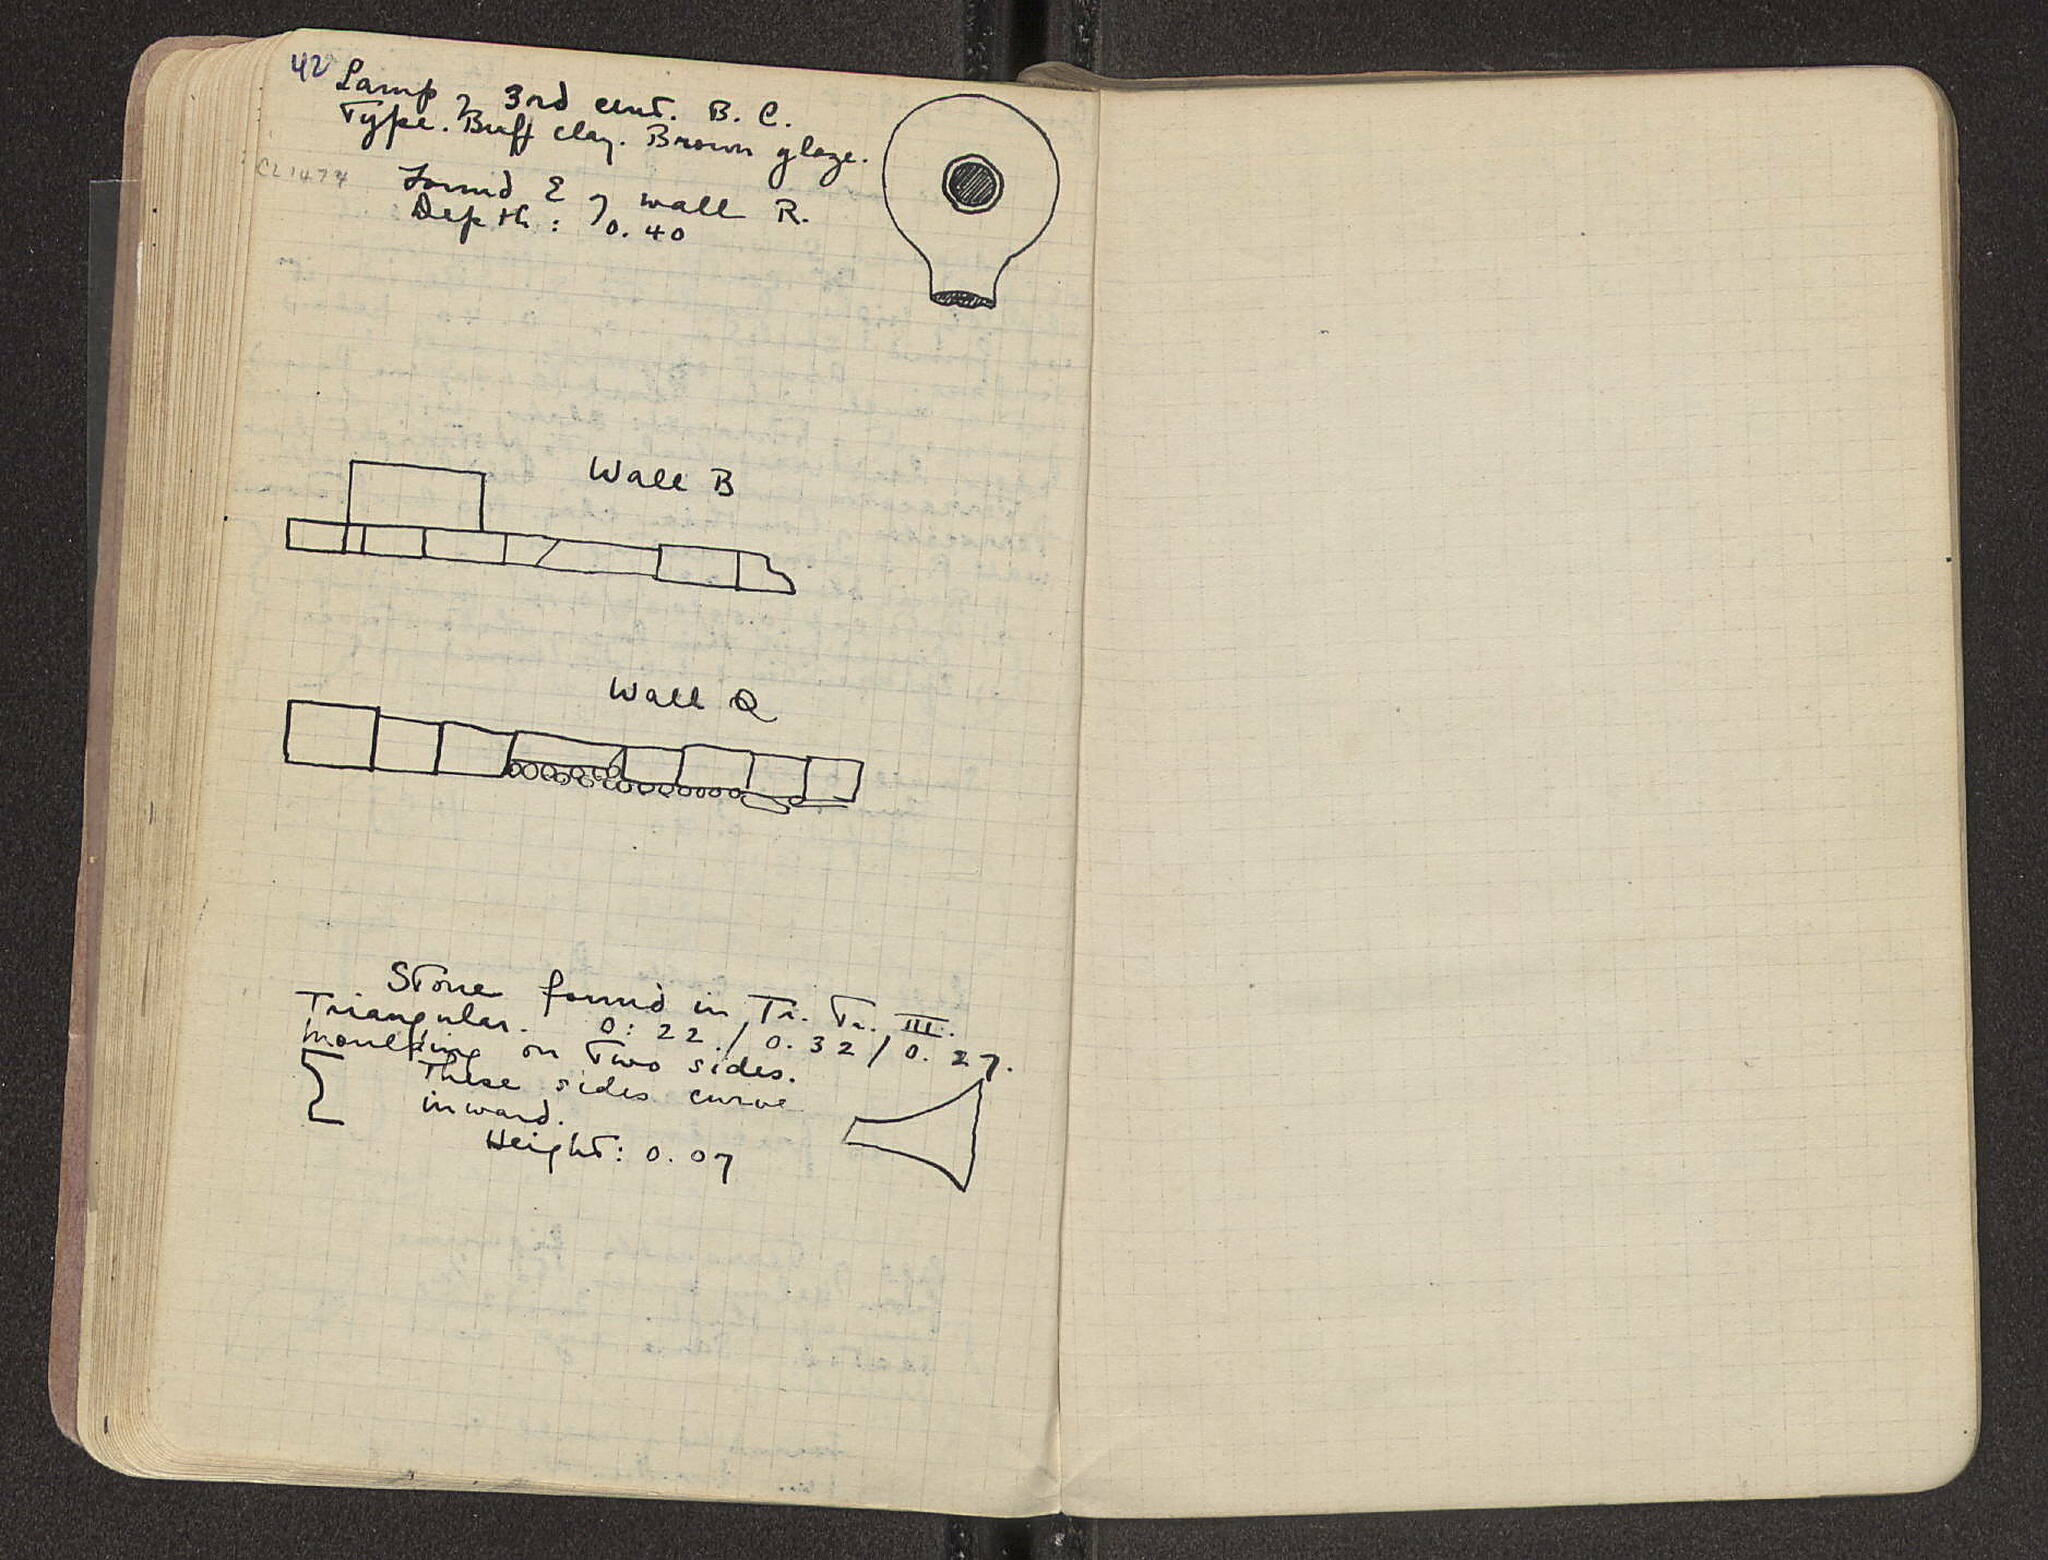 42
Lamp of 3rd cent. B. C.
Type. Buff clay. Brown glaze.
CL 1474
Found E of wall R.
Depth: 0.40
Wall B
Wall Q
Stone found in Tr. Tr. III.
Triangular. 0:22 / 0.32 / 0.27.
Moulding on Two sides.
These sides curve
inward.
Height: 0.07